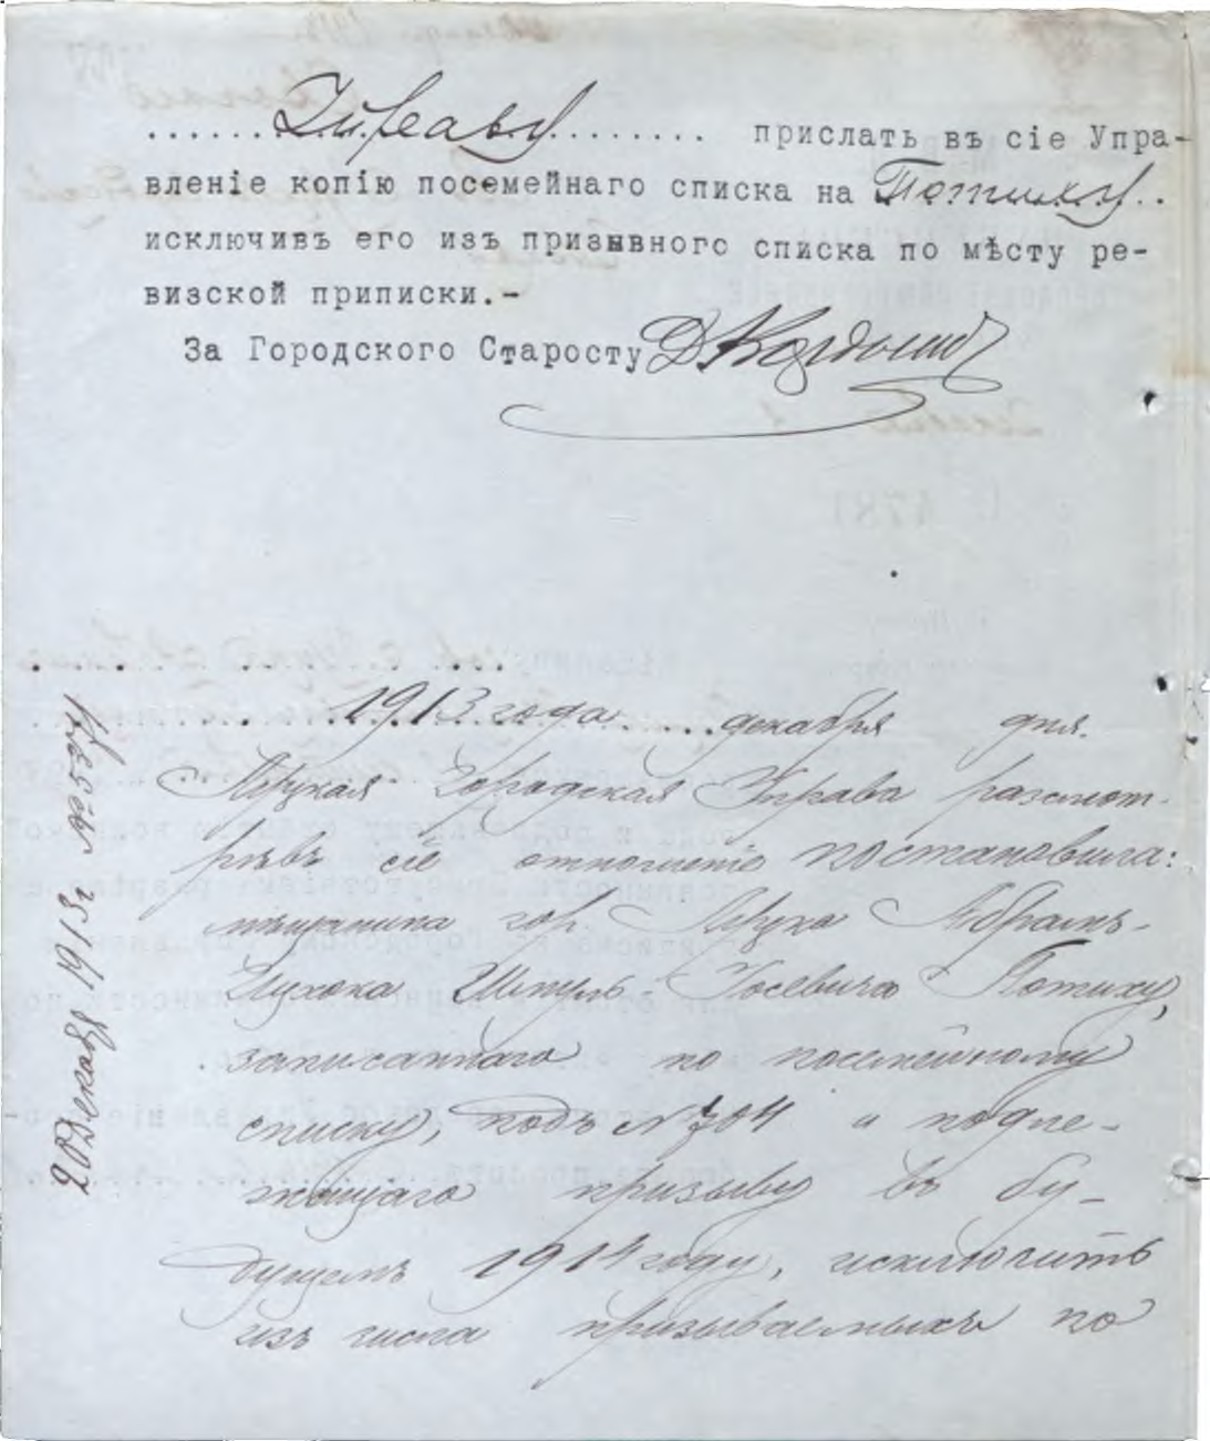 ......Управу........ прислать въ сіе Упра-
вленіе копію посемейнаго списка на Потиху..
исключивъ его изъ призывного списка по мѣсту ре-
визской приписки.-
За Городского Старосту
1913 года декабря дня.
Луцкая Городская Управа разсмот-
рѣвъ сіе отношеніе постановила:
мѣщанина гор. Луцка Абрамъ-
Шмуль- Іосевича Потиху,
записаннаго по посемейному
списку, подъ № 704 и подле-
жащаго призыву въ бу-
дущемъ 1914 году, исключить
изъ числа призываемыхъ по
20 Декабр 1913 г. №5527